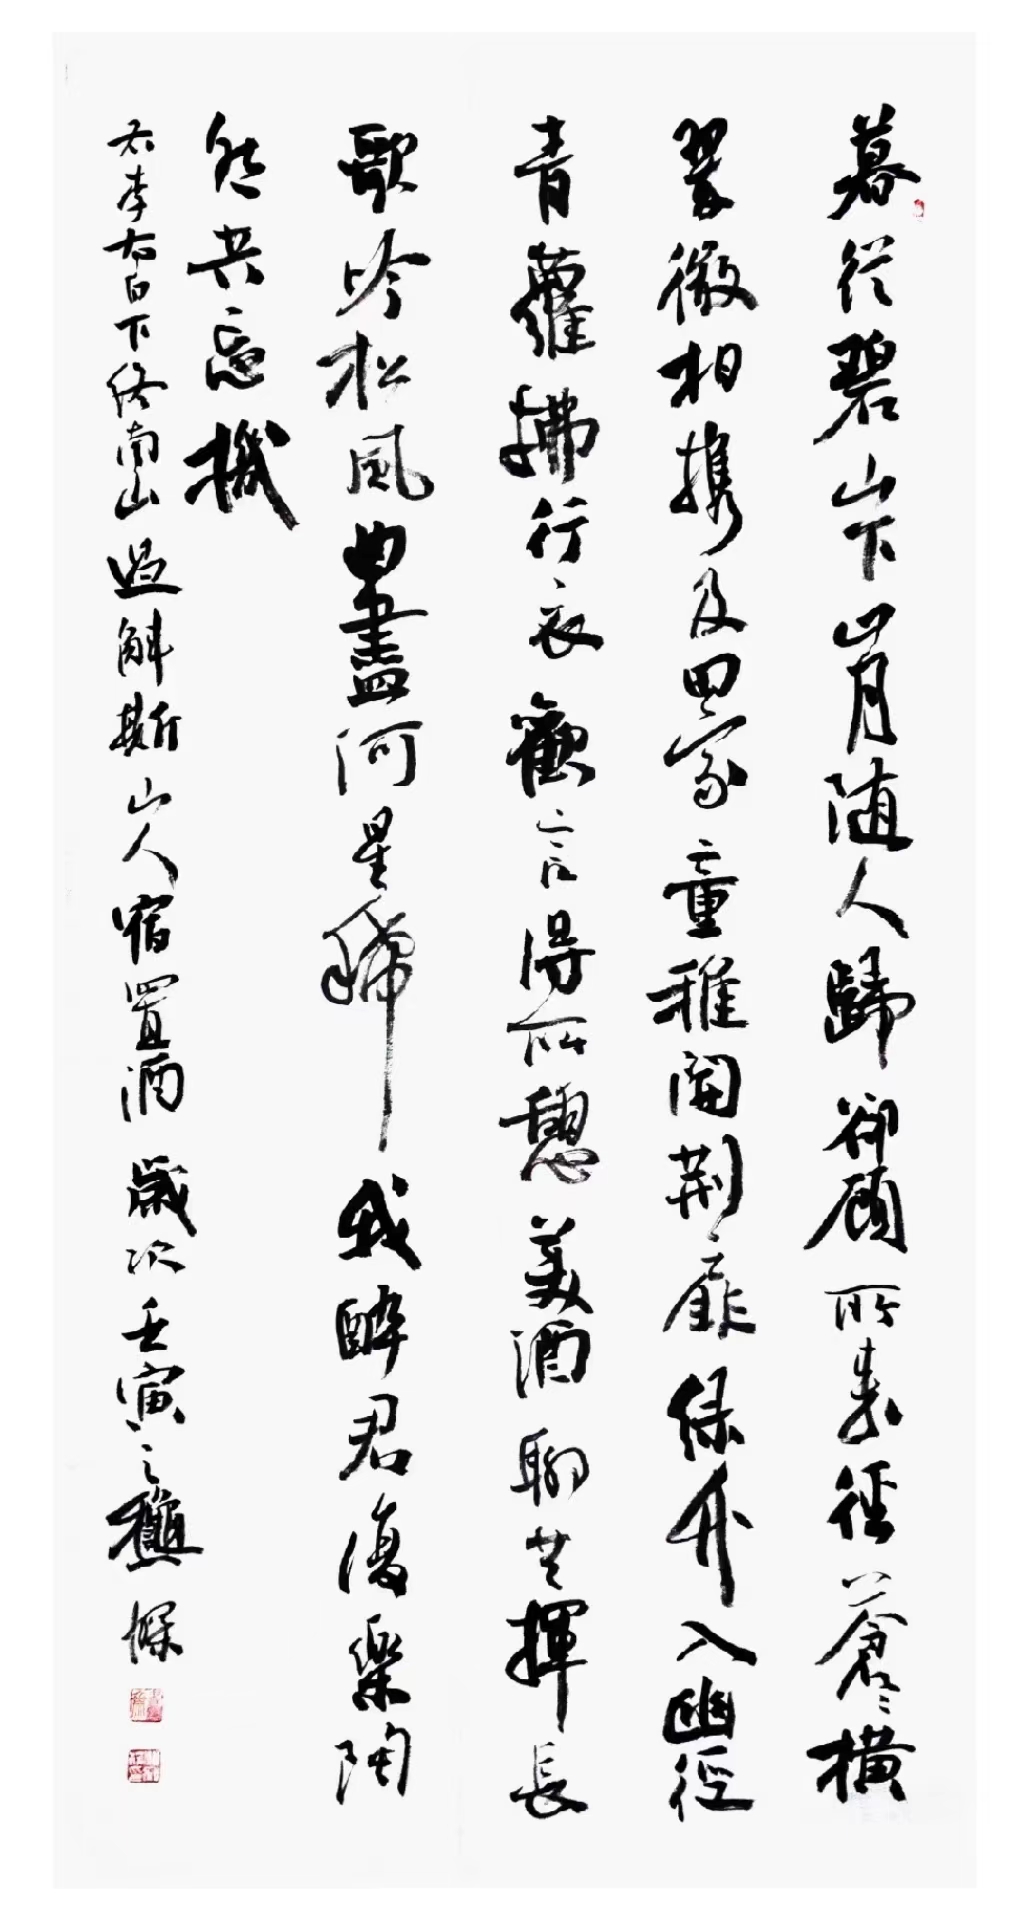 暮從碧山下山月随人歸卻顧所来徑蒼々橫
翠微相攜及田家童稚開荆扉绿竹入幽徑
青蘿拂行衣歡言得所憩美酒聊共揮長
歌吟松風曲盡河星稀我醉君復樂陶
然共忘機
右李白下终南山過斛斯山人宿置酒歲次壬寅之龝